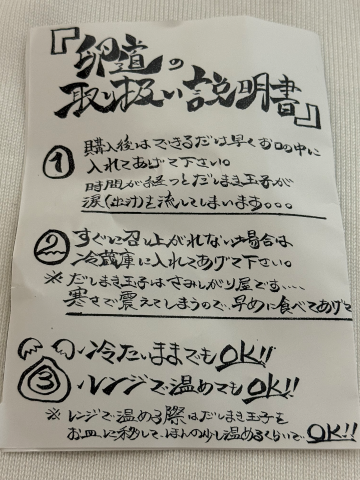 『卵道の
取り扱い説明書』
① 購入後はできるだけ早くお口の中に
入れてあげて下さい。
時間が経つとだしまき玉子が
涙(出汁)を流してしまいます。。。
② すぐに召し上がれない場合は
冷蔵庫に入れてあげて下さい。
※だしまき玉子はさみしがり屋です....
寒さで震えてしまうので、早めに食べてあげて
冷たいままでもOK!!
③ レンジで温めてもOK!!
※レンジで温める際はだしまき玉子を
お皿に移して、ほんの少し温めるくらいでOK!!